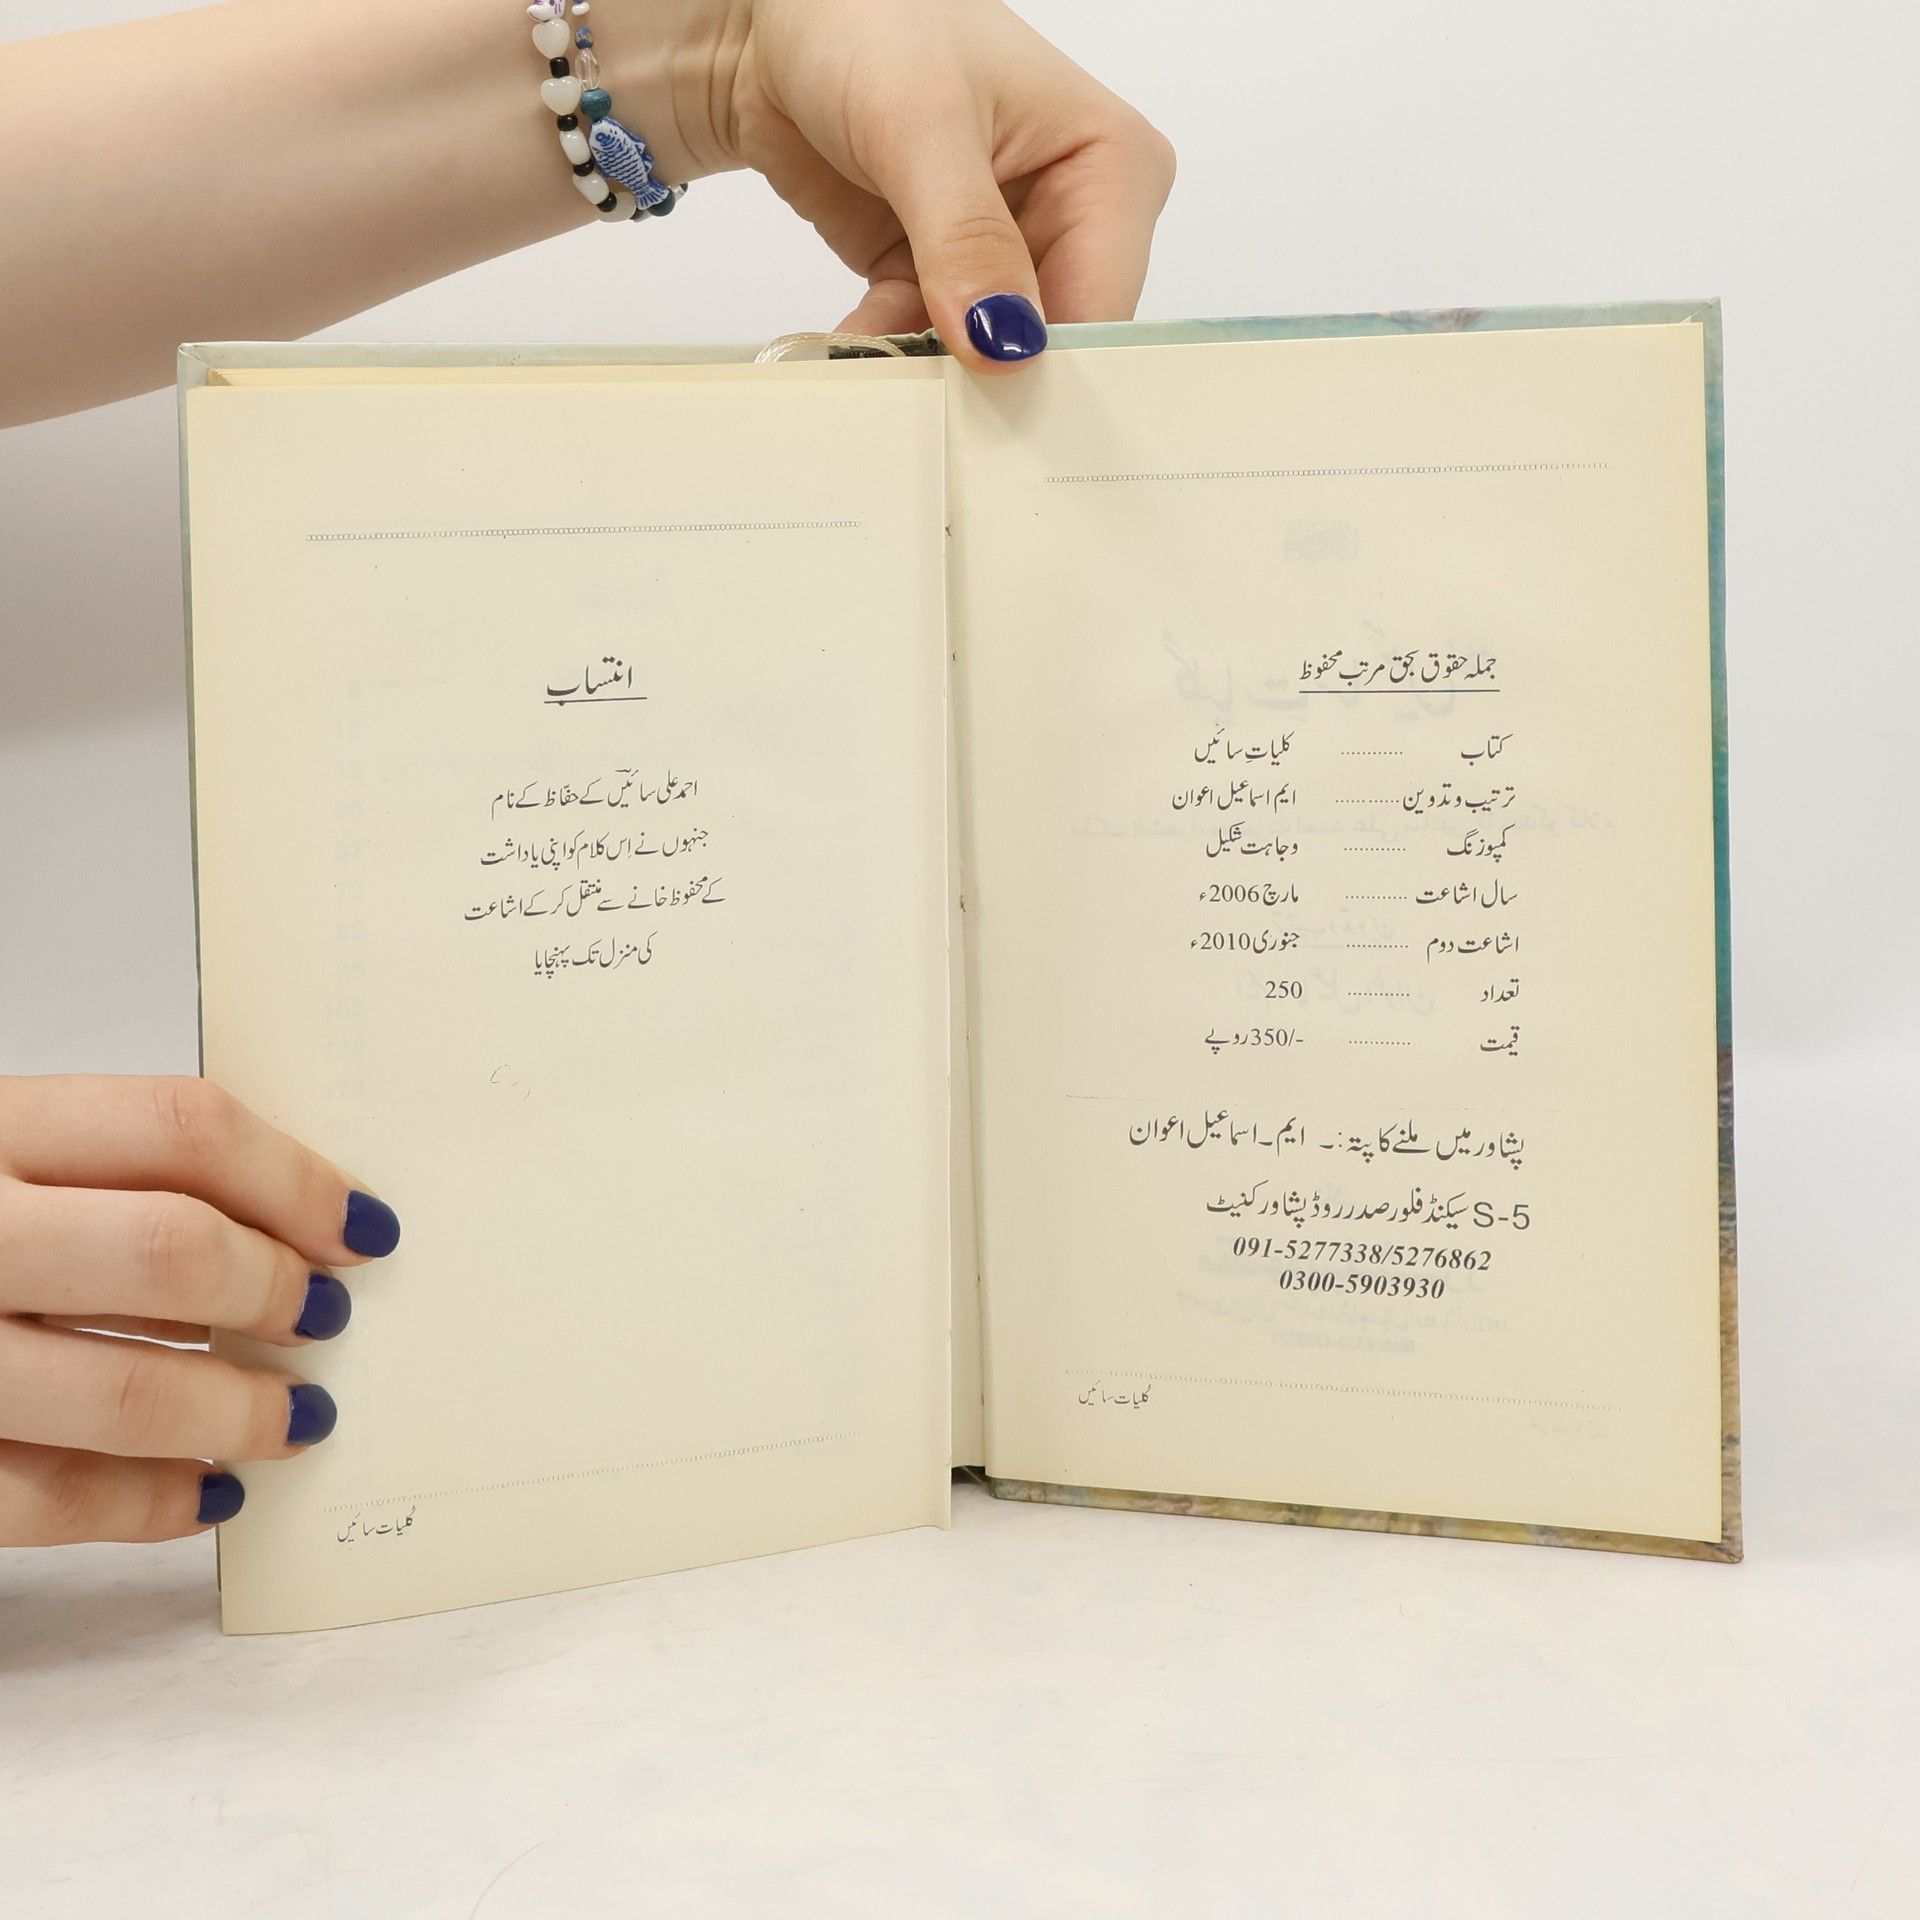 جملہ حقوق بحق مرتب محفوظ
کتاب ............ کلیاتِ سائیں
ترتیب و تدوین ............ ایم اسماعیل اعوان
کمپوزنگ ............ وجاہت شکیل
سال اشاعت ............ مارچ 2006ء
اشاعت دوم ............ جنوری 2010ء
تعداد ............ 250
قیمت ............ 350/- روپے
پشاور میں ملنے کا پتہ :۔ ایم۔اسماعیل اعوان
S-5 سیکنڈ فلور صدر روڈ پشاور کنیٹ
091-5277338/5276862
0300-5903930
کُلیات سائیں
انتساب
احمد علی سائیںؒ کے حفّاظ کے نام
جنہوں نے اِس کلام کو اپنی یاداشت
کے محفوظ خانے سے منتقل کر کے اشاعت
کی منزل تک پہنچایا
کُلیات سائیں